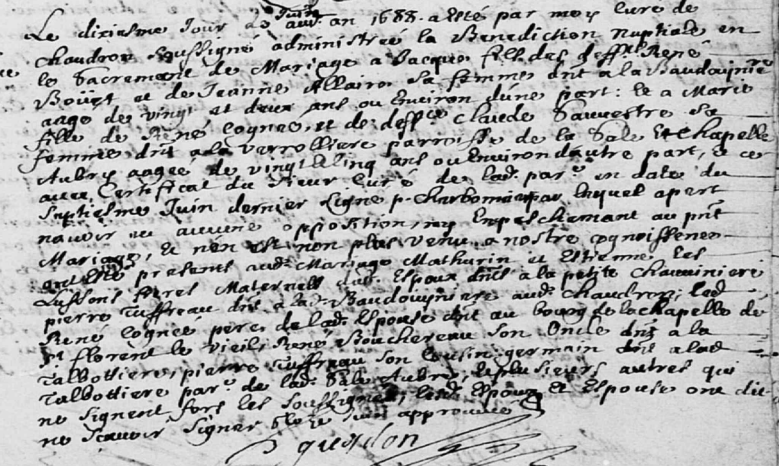 Le dixiesme Jour de Juin an 1688. a esté par moy Curé de
Chaudron soussigné administreé la Benediction nuptiale en
le sacrement de Mariage a Jacques fill. des deff.ts René
Boüet et de Jeanne Allaire sa femme dnt a la Baudouinie
aagé de vingt et deux ans ou Environ d'une part: et a Marie
fille de René Cognée, et de deff.te Claude Sauvestre sa
femme dnt a la Verrolliere parroisse de la Sale Et Chapelle
Aubry aagee de vingt & Cinq ans ou Environ d'autre part, &
avec Certificat du Sieur Curé de lad. par.e en datte du
Septiesme Juin dernier signé p. Charbonnier par lequel apert
n'avoir eu aucune opposition, ny Enpeschemant au pnt
Mariage, et n'en est non plus venu a nostre cognoissence
ont esté presents aud. Mariage Mathurin et Estienne Les
Lussons freres Maternels dud. Espoux dnts a la petite Chauviniere
pierre Tuffreau dnt a la Baudouiniere aud. Chaudron, led.
René Cognee pere de lad. Espouse dnt au bourg de la chapelle de
St florent le vieil, René Bouchereau son Oncle dnt a la
Talbottiere, pierre Tuffreau son Cousin germain dnt a lad.
Talbottiere par.e de lad. Sale Aubry, & plusieurs autres qui
ne signent fors les soussignés, lesd. Espoux & Espouse ont dit
ne scavoir signer juin approuvée